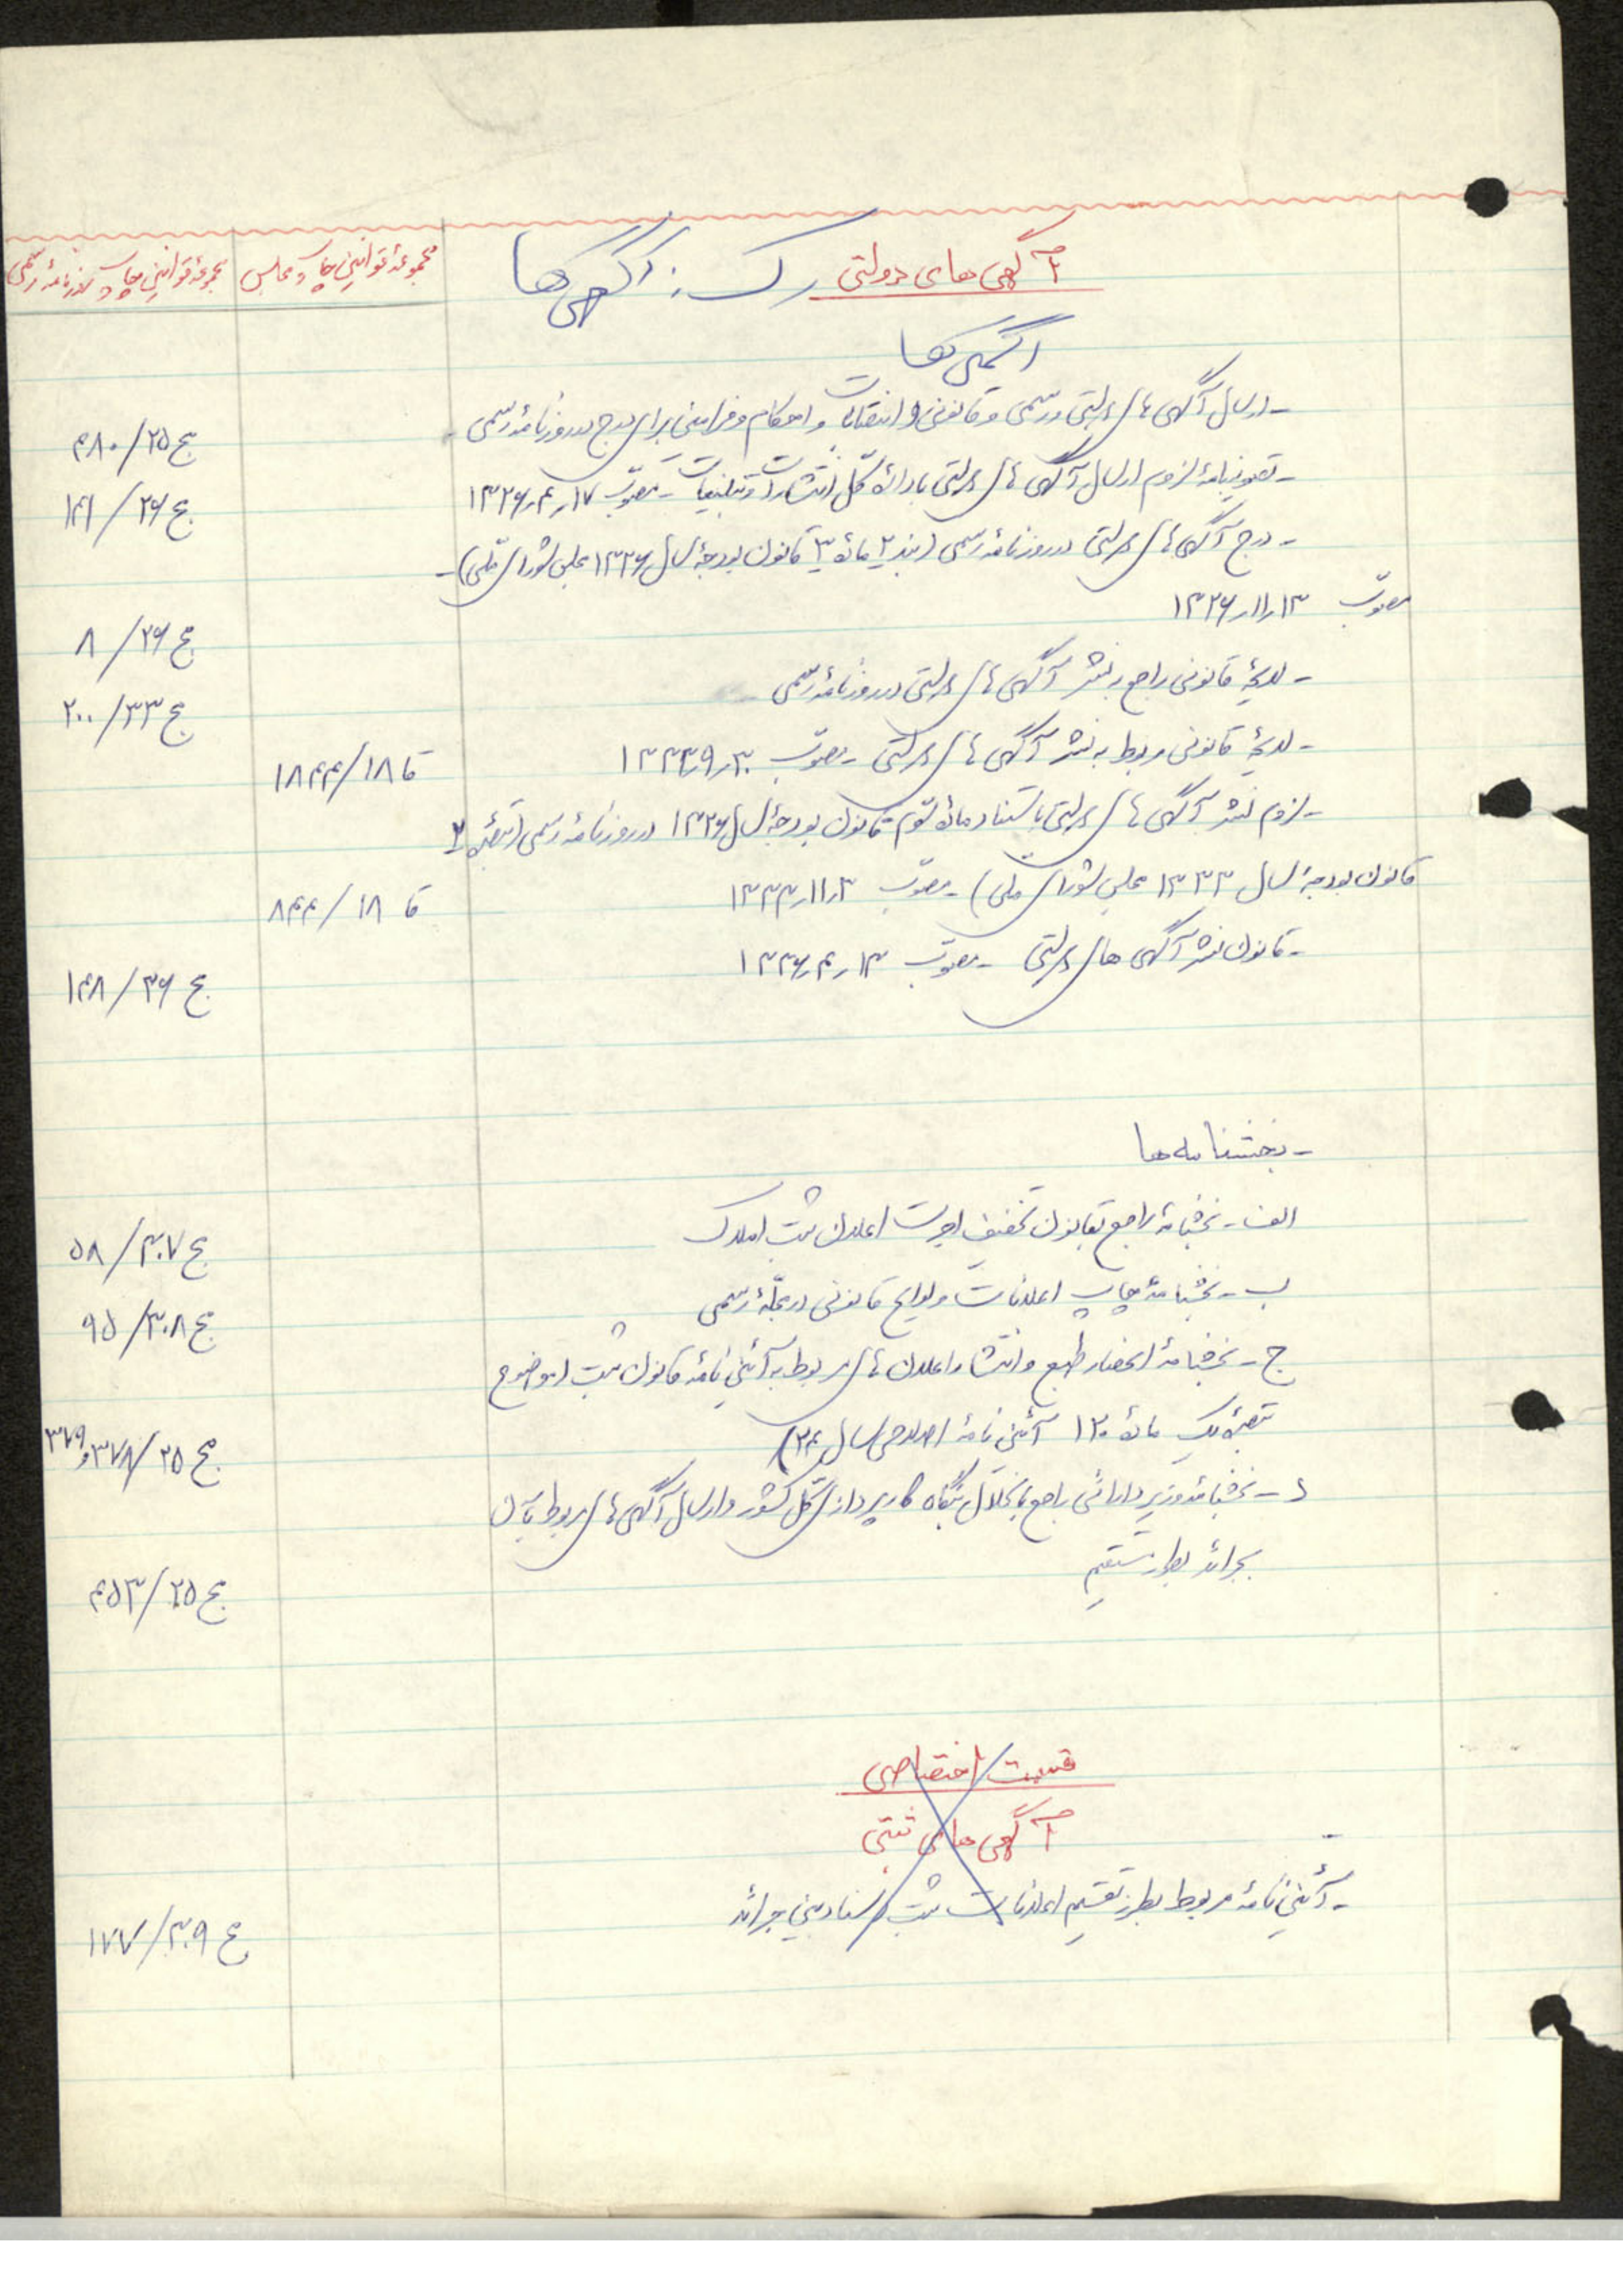 آگهی های دولتی رک : آگهی ها
مجموعهٔ قوانین چاپ مجلس
مجموعهٔ قوانین چاپ روزنامهٔ رسمی
آگهی ها
- ارسال آگهی های دولتی و رسمی و قانونی و انتصابات و احکام و فرامین برای درج در روزنامهٔ رسمی
مج ۲۵/ ۴۸۰
- تصویبنامهٔ لزوم ارسال آگهی های دولتی باداره کل انتشارات و تبلیغات - مصوّب ۱۷ر۴ر۱۳۲۶
مج ۲۶/ ۱۴۱
- درج آگهی های دولتی در روزنامه رسمی (بند ۲ مادهٔ ۳ قانون بودجهٔ سال ۱۳۲۶ مجلس شورای ملّی) -
مصوّب ۱۳ر۱۱ر۱۳۲۶
مج ۲۶/ ۸
- لایحهٔ قانونی راجع بنشر آگهی های دولتی در روزنامهٔ رسمی
مج ۳۳/ ۲۰۰
- لایحهٔ قانونی مربوط به نشر آگهی های دولتی - مصوّب ۳۰ر۹ر۱۳۳۳
قا ۱۸/ ۱۸۴۴
- لزوم نشر آگهی های دولتی باستناد مادهٔ سوّم قانون بودجهٔ سال ۱۳۲۶ در روزنامهٔ رسمی (تبصرهٔ ۲
قانون بودجهٔ سال ۱۳۳۳ مجلس شورای ملی) - مصوّب ۳ر۱۱ر۱۳۳۳
قا ۱۸/ ۸۴۴
- قانون نشر آگهی های دولتی - مصوّب ۱۳ر۴ر۱۳۳۶
مج ۳۶/ ۱۴۸
- بخشنامه ها
الف - بخشنامهٔ راجع بقانون تخفیف اجرت اعلان ثبت املاک
مج ۳۰۷/ ۵۸
ب - بخشنامهٔ چاپ اعلانات و لوایح قانونی در مجلّهٔ رسمی
مج ۳۰۸/ ۹۵
ج - بخشنامهٔ انحصار طبع و انتشار اعلان های مربوط به آئین نامهٔ قانون ثبت (موضوع
تبصرهٔ یک مادهٔ ۱۲۰ آئین نامهٔ اصلاحی سال ۲۴)
مج ۲۵/ ۳۷۸ و ۳۷۹
د - بخشنامهٔ وزیر دارائی راجع بانحلال بنگاه کارپردازی کل کشور و ارسال آگهی های مربوط بآن
بجرائد بطور مستقیم
مج ۲۵/ ۴۵۳
قسمت اختصاصی
آگهی های ثبتی
- آئین نامهٔ مربوط بطرز تقسیم اعلانات ثبت اسناد بین جرائد
مج ۳۰۹/ ۱۷۷